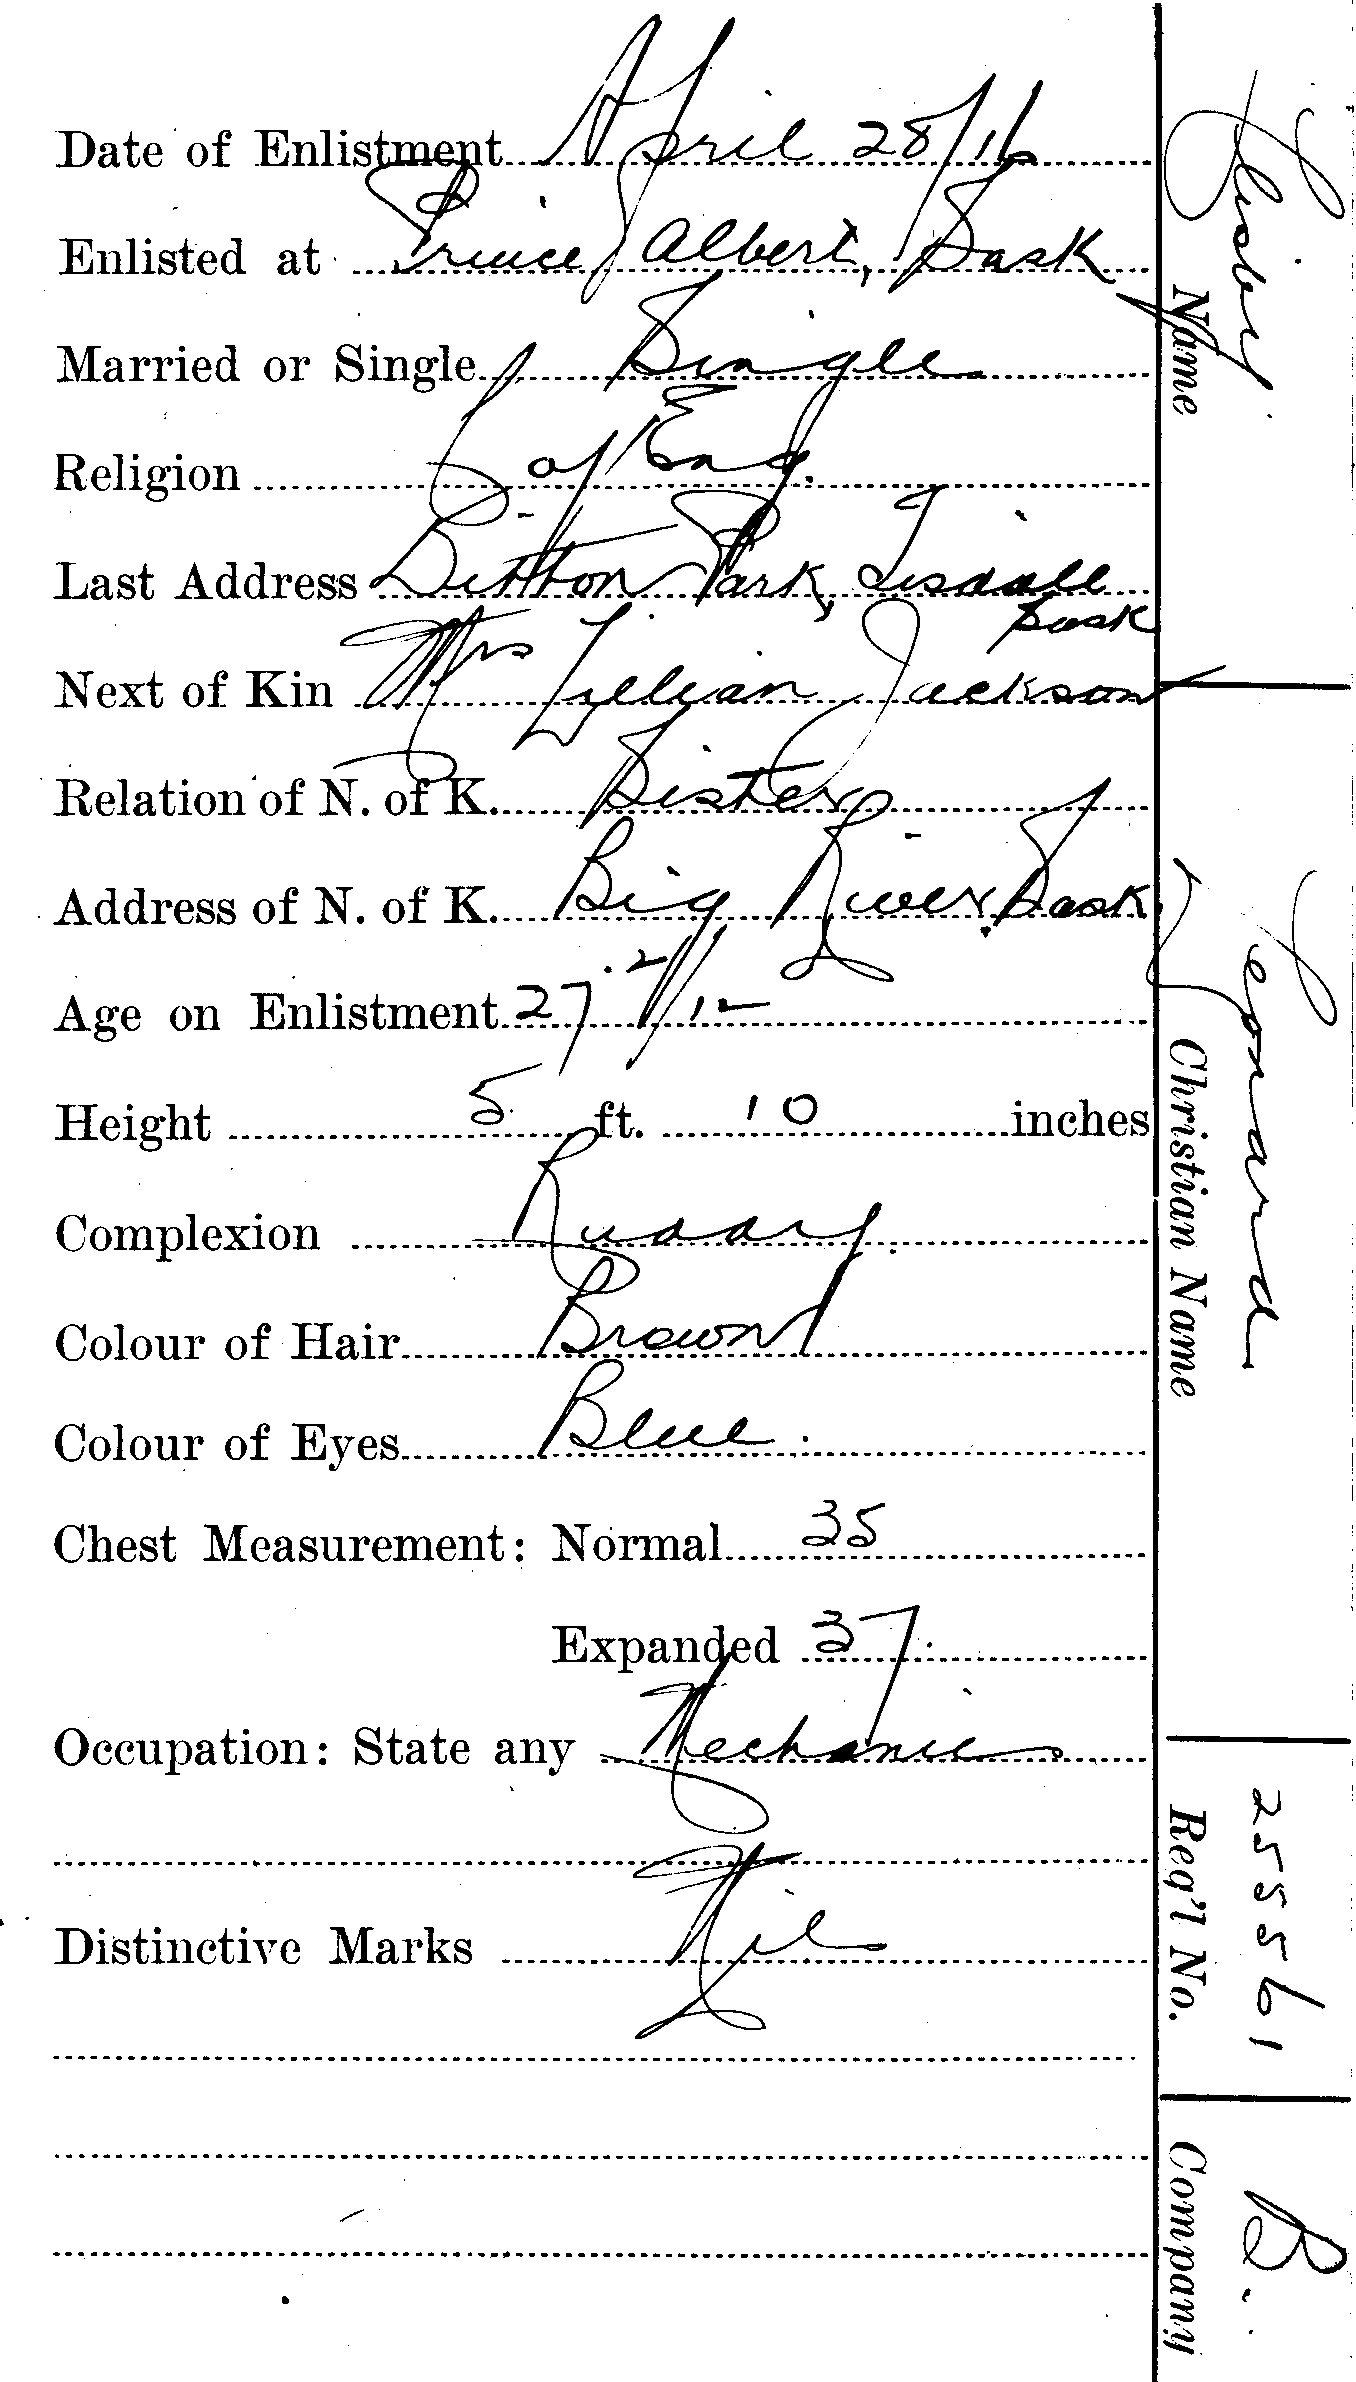 Date of Enlistment April 28/16
Enlisted at Prince Albert, Sask
Married or Single Single
Religion C of Eng.
Last Address Bitton Park, Tisdale
Sask
Next of Kin Mrs Lillian Jackson
Relation of N. of K. Sister
Address of N. of K. Big River, Sask
Age on Enlistment 27 2/12
Height 5 ft. 10 inches
Complexion Ruddy.
Colour of Hair Brown
Colour of Eyes Blue.
Chest Measurement: Normal 35
Expanded 37
Occupation: State any Mechanic
Distinctive Marks Nil
Lisby Leonard 255561 B.
Name Christian Name Req'l No. Company